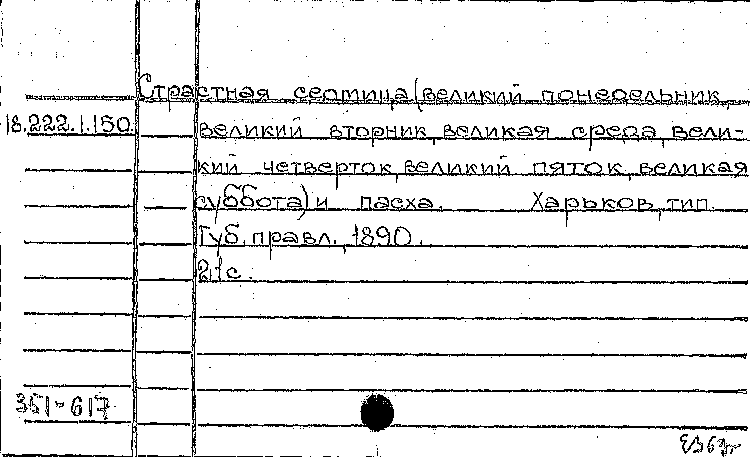 Страстная седмица (великий понедельник,
18.222.1.150. великий вторник, великая среда, вели-
кий четверток, великий пяток, великая
суббота) и пасха. Харьков, тип.
Губ. правл., 1890.
21с.
351-617